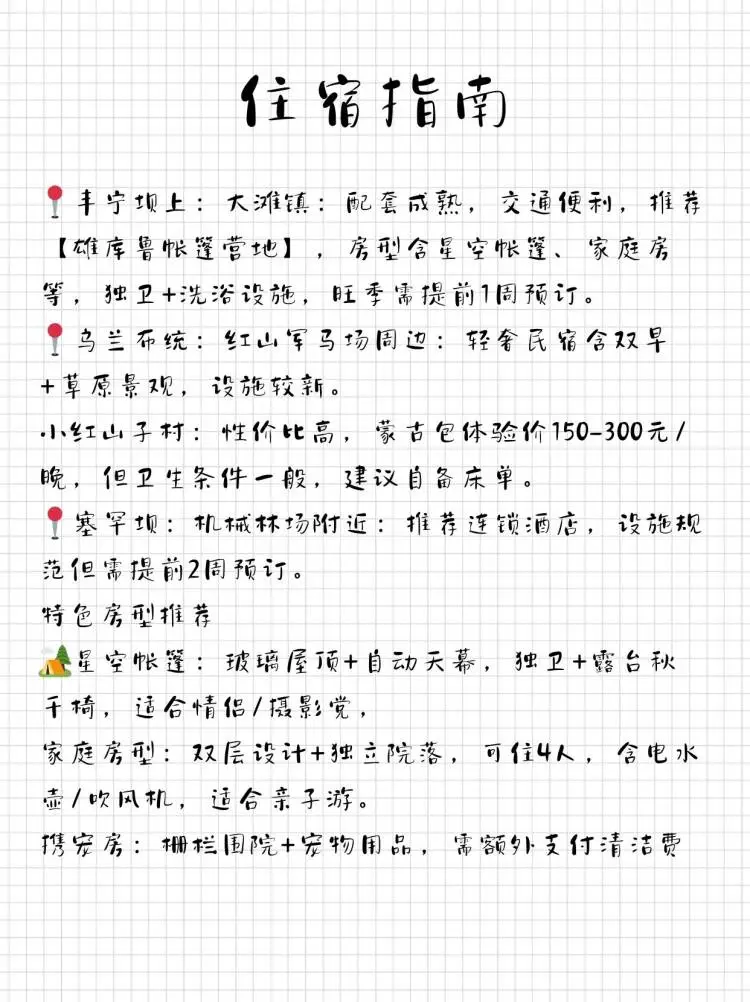 住宿指南
📍丰宁坝上：大滩镇：配套成熟，交通便利，推荐
【雄库鲁帐篷营地】，房型含星空帐篷、家庭房
等，独卫+洗浴设施，旺季需提前1周预订。
📍乌兰布统：红山军马场周边：轻奢民宿含双早
+草原景观，设施较新。
小红山子村：性价比高，蒙古包体验价150-300元/
晚，但卫生条件一般，建议自备床单。
📍塞罕坝：机械林场附近：推荐连锁酒店，设施规
范但需提前2周预订。
特色房型推荐
🏕️星空帐篷：玻璃屋顶+自动天幕，独卫+露台秋
千椅，适合情侣/摄影党，
家庭房型：双层设计+独立院落，可住4人，含电水
壶/吹风机，适合亲子游。
携宠房：栅栏围院+宠物用品，需额外支付清洁费